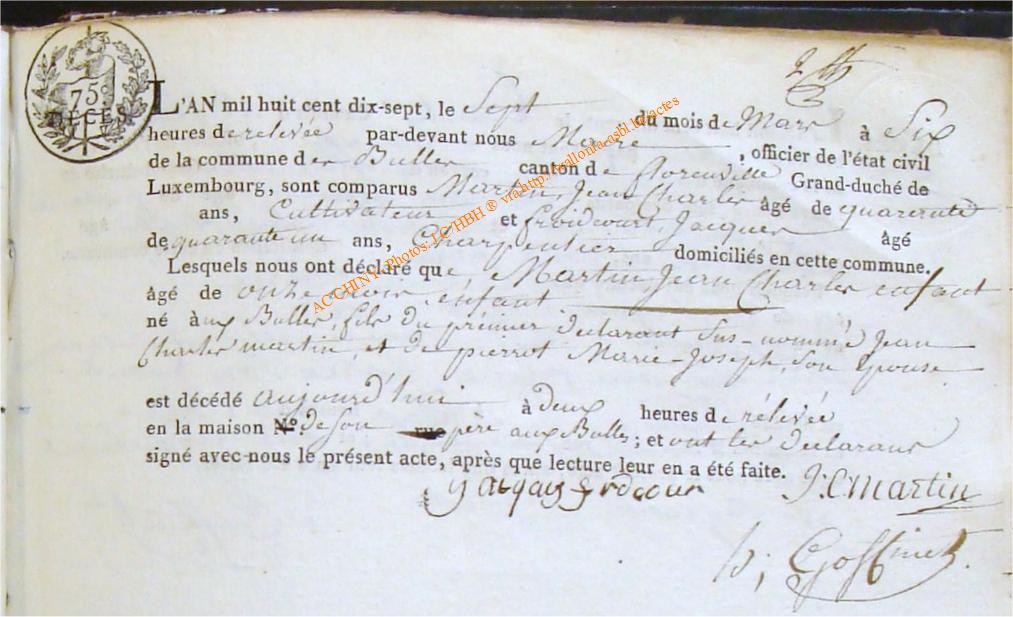 75 C
DÉCÈS
L'AN mil huit cent dix-sept, le Sept du mois de Mars à Six
heures de relevée par-devant nous Maire, officier de l'état civil
de la commune des Bulles canton de florenville Grand-duché de
Luxembourg, sont comparus Martin, Jean Charles âgé de quarente
ans, Cultivateur et froidcourt, Jacques âgé
de quarante un ans, Charpentier domiciliés en cette commune.
Lesquels nous ont déclaré que Martin, Jean Charles enfant
âgé de onze mois, enfant
né à ux Bulles, fils du prémier declarant sus-nommé Jean
Charles martin, et de pierrot Marie-Joseph, son épouse
est décédé aujourd'hui à deux heures de rélevée
en la maison N°. de son rue père aux Bulles; et ont les declarans
signé avec nous le présent acte, après que lecture leur en a été faite.
J:C martin
h; Goffinet
ACCHINY Photos: LC/HBH ® via http://wallonia-asbl.be/actes